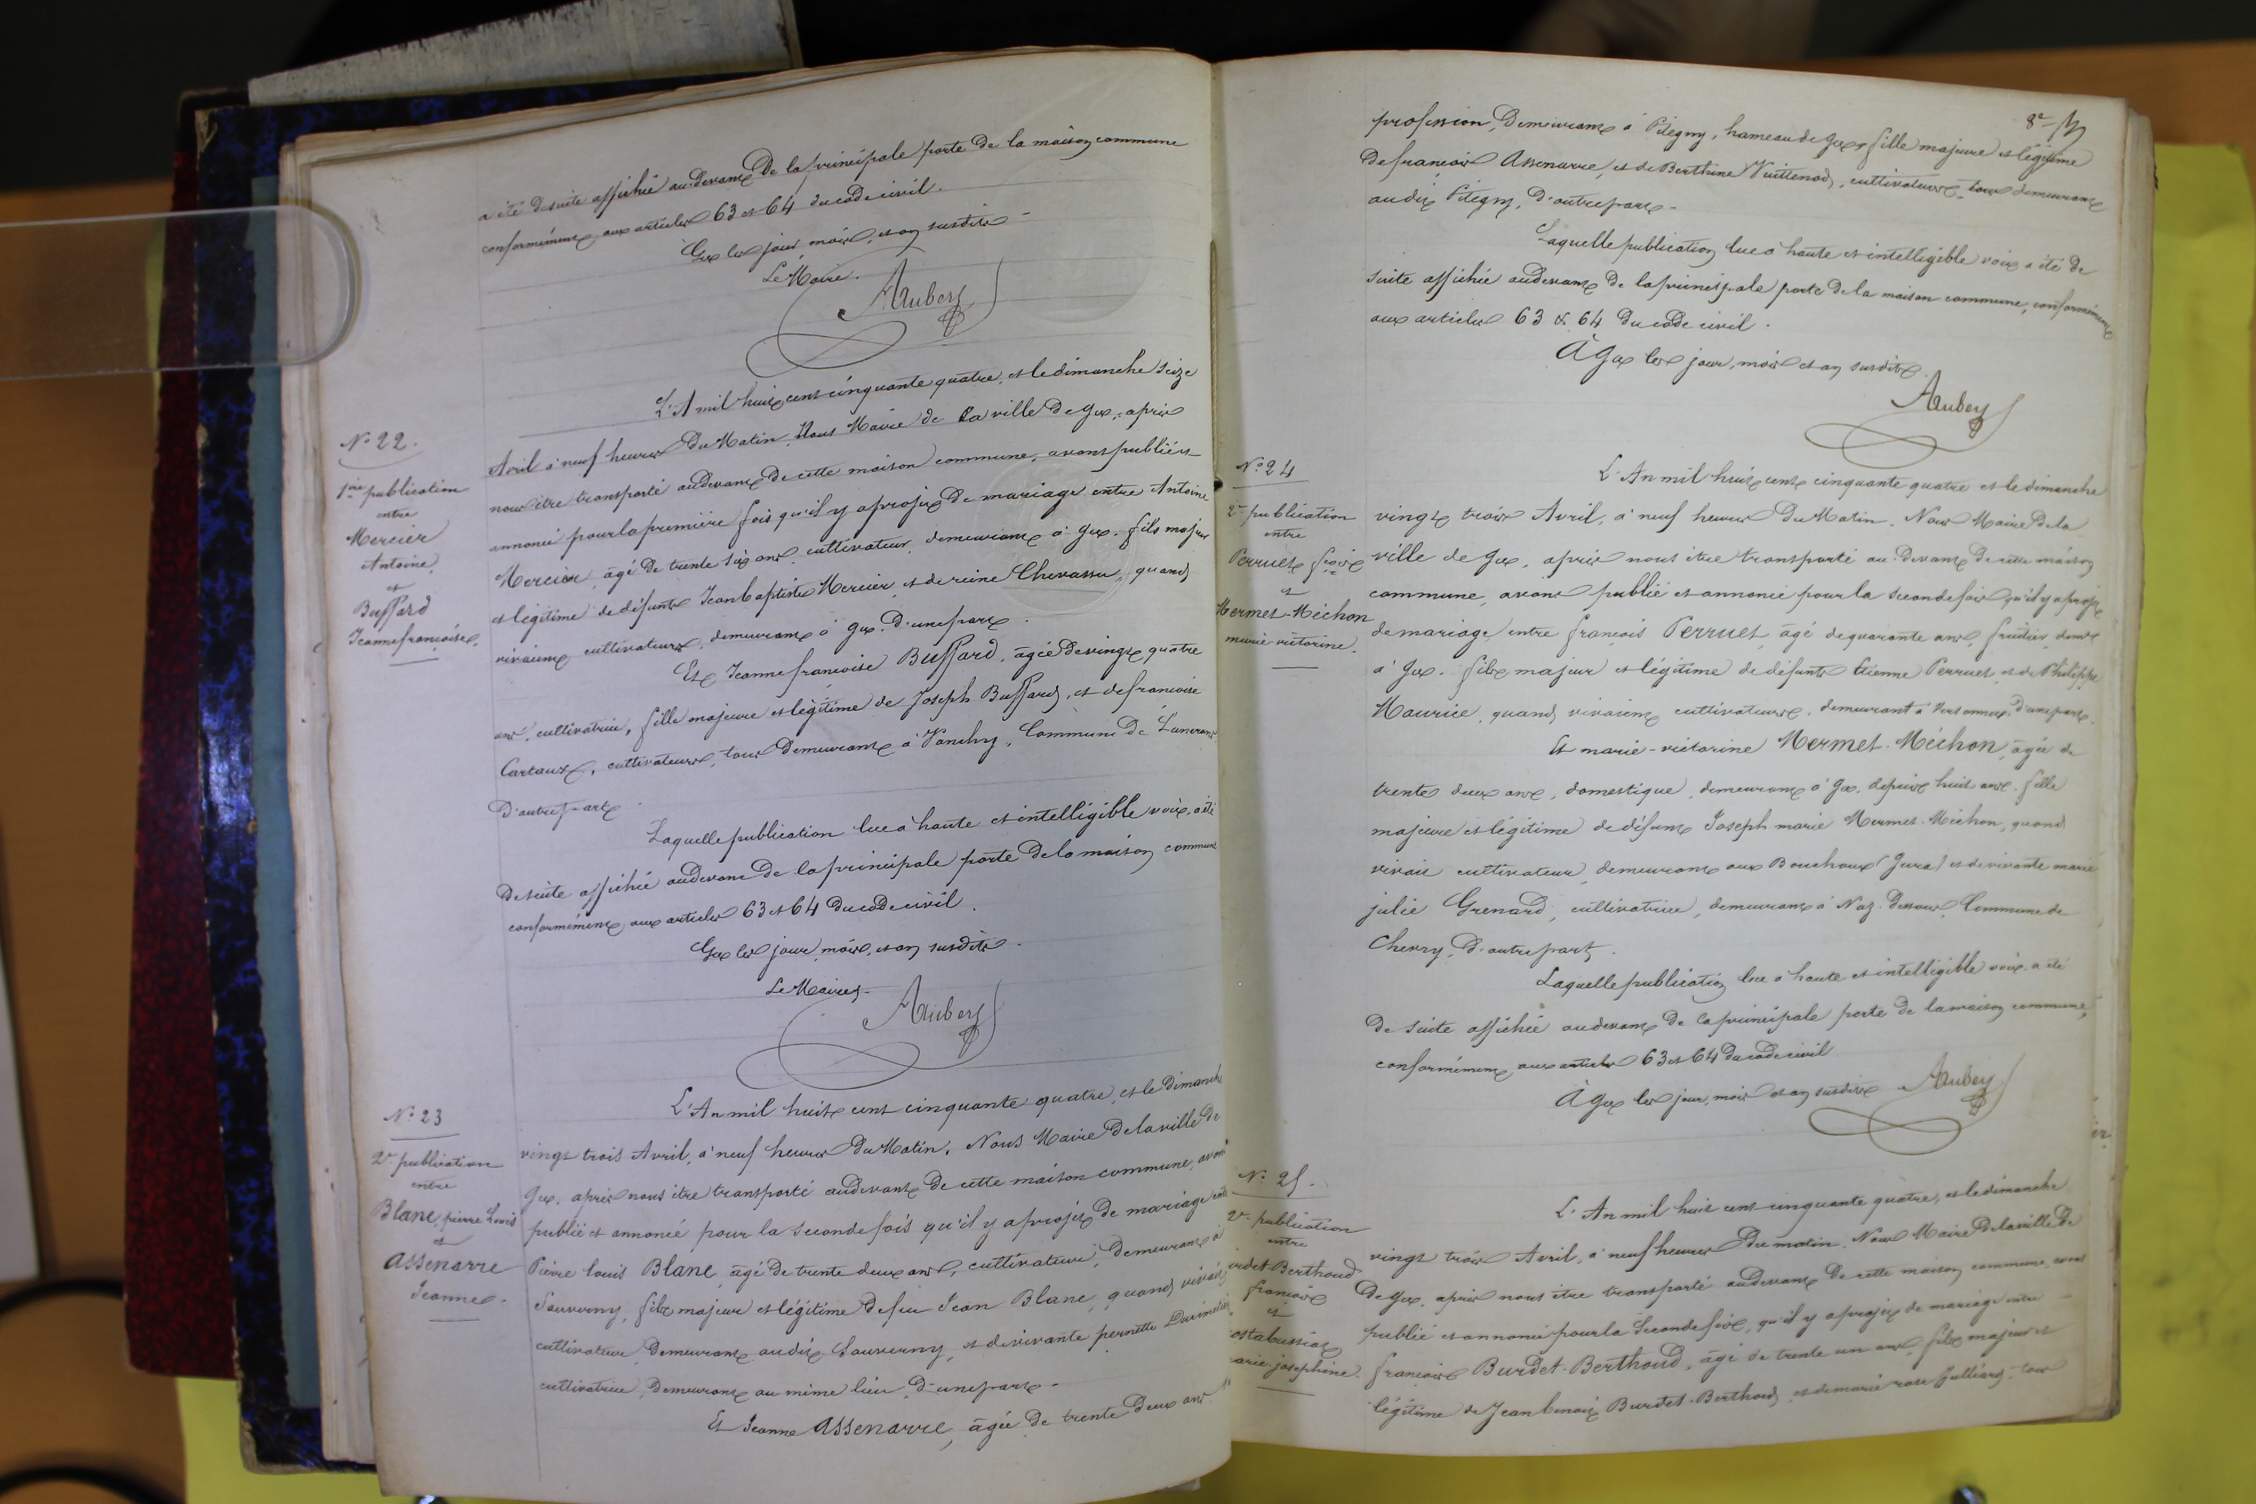 a été de suite affichée au devant de la principale porte de la maison commune
conformément aux articles 63 et 64 du code civil.
Gex les jour, mois, et an susdits
Le Maire.
Aubert
N° 22.
1ère publication
entre
Mercier
Antoine
et
Buffard
Jeanne françoise.
L'A mil huit cent cinquante quatre, et le dimanche seize
Avril à neuf heures du Matin, Nous Maire de la ville de Gex, après
nous être transporté au devant de cette maison commune, avons publié et
annoncé pour la première fois qu'il y a projet de mariage entre Antoine
Mercier, âgé de trente six ans, cultivateur, demeurant à Gex, fils majeur
et légitime de défunts Jean baptiste Mercier, et de reine Chevassu, quand
vivaient cultivateurs, demeurant à Gex. D'une part.
Et Jeanne françoise Buffard, âgée de vingt quatre
ans, cultivatrice, fille majeure et légitime de Joseph Buffard, et de françoise
Cartaux, cultivateurs, tous demeurant à Vanchy, Commune de Lancrans
D'autre part.
Laquelle publication lue à haute et intelligible voix, a été
de suite affichée au devant de la principale porte de la maison commune
conformément aux articles 63 et 64 du code civil.
Gex les jour, mois, et an susdits.
Le Maire,
Aubert
N° 23
2e publication
entre
Blanc, pierre Louis
et
Assenarre
Jeanne.
L'An mil huit cent cinquante quatre, et le Dimanche
vingt trois Avril, à neuf heures du Matin, Nous Maire de la ville de
Gex, après nous être transporté au devant de cette maison commune, avons
publié et annoncé pour la seconde fois qu'il y a projet de mariage entre
Pierre louis Blanc, âgé de trente deux ans, cultivateur, demeurant à
Sauverny, fils majeur et légitime de feu Jean Blanc, quand vivait
cultivateur, demeurant au dit Sauverny, et de vivante pernette
cultivatrice, demeurant au même lieu, D'une part.
Et Jeanne Assenarre, âgée de trente deux ans
8e
profession, Demeurant à Pitegny, hameau de Gex, fille majeure et légitime
de françois Assenarre, et de Berthine Vuillenod, cultivateurs, tous demeurant
au dit Pitegny, D'autre part.
Laquelle publication lue à haute et intelligible voix a été de
suite affichée au devant de la principale porte de la maison commune, conformément
aux articles 63 & 64 du code civil.
À Gex les jour, mois et an susdits.
Aubert
N° 24
2e publication
entre
Perruet fçois
et
Mermet-Méchon
marie-victorine.
L'An mil huit cent cinquante quatre et le dimanche
vingt trois Avril, à neuf heures du Matin. Nous Maire de la
ville de Gex, après nous être transporté au devant de cette maison
commune, avons publié et annoncé pour la seconde fois, qu'il y a projet
de mariage entre françois Perruet, âgé de quarante ans, fruitier, demt
à Gex. fils majeur et légitime de défunts Etienne Perruet, et de Philippe
Maurice, quand vivaient cultivateurs, demeurant à Versonnex, D'une part.
Et marie-victorine Mermet-Méchon, âgée de
trente deux ans, domestique, demeurant à Gex, depuis huit ans. fille
majeure et légitime de défunt Joseph marie Mermet-Méchon, quand
vivait cultivateur, demeurant aux Bouchoux (Jura) et de vivante marie
julie Grenard, cultivatrice, demeurant à Naz-Dessous, Commune de
Chevry, D'autre part.
Laquelle publication lue à haute et intelligible voix a été
de suite affichée au devant de la principale porte de la maison commune,
conformément aux articles 63 et 64 du code civil
À Gex les jour, mois et an susdits
Aubert
N° 25.
2e publication
entre
urdet-Berthoud
françois
et
arie-josephine.
L'An mil huit cent cinquante quatre, et le dimanche
vingt trois Avril, à neuf heures du matin, Nous Maire de la ville de
de Gex, après nous être transporté au devant de cette maison commune, avons
publié et annoncé pour la seconde fois, qu'il y a projet de mariage entre
françois Burdet-Berthoud, âgé de trente un ans, fils majeur et
légitime de Jean benoit Burdet-Berthoud, et de marie rose Julliard, tous